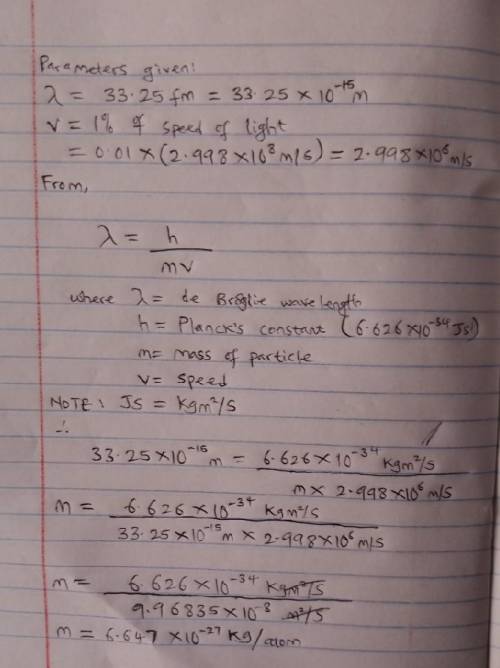 Parameters given:
λ = 33.25 fm = 33.25 × 10⁻¹⁵ m
v = 1% of speed of light
= 0.01 × (2.998 × 10⁸ m/s) = 2.998 × 10⁶ m/s
From,
λ = h / mv
where λ = de Broglie wavelength
h = Planck's constant (6.626 × 10⁻³⁴ Js)
m = mass of particle
v = speed
NOTE: Js = Kgm²/s
∴
33.25 × 10⁻¹⁵ m = 6.626 × 10⁻³⁴ Kgm²/s / m × 2.998 × 10⁶ m/s
m = 6.626 × 10⁻³⁴ Kgm²/s / 33.25 × 10⁻¹⁵ m × 2.998 × 10⁶ m/s
m = 6.626 × 10⁻³⁴ Kgm²/s / 9.96835 × 10⁻⁸ m²/s
m = 6.647 × 10⁻²⁷ Kg/atom